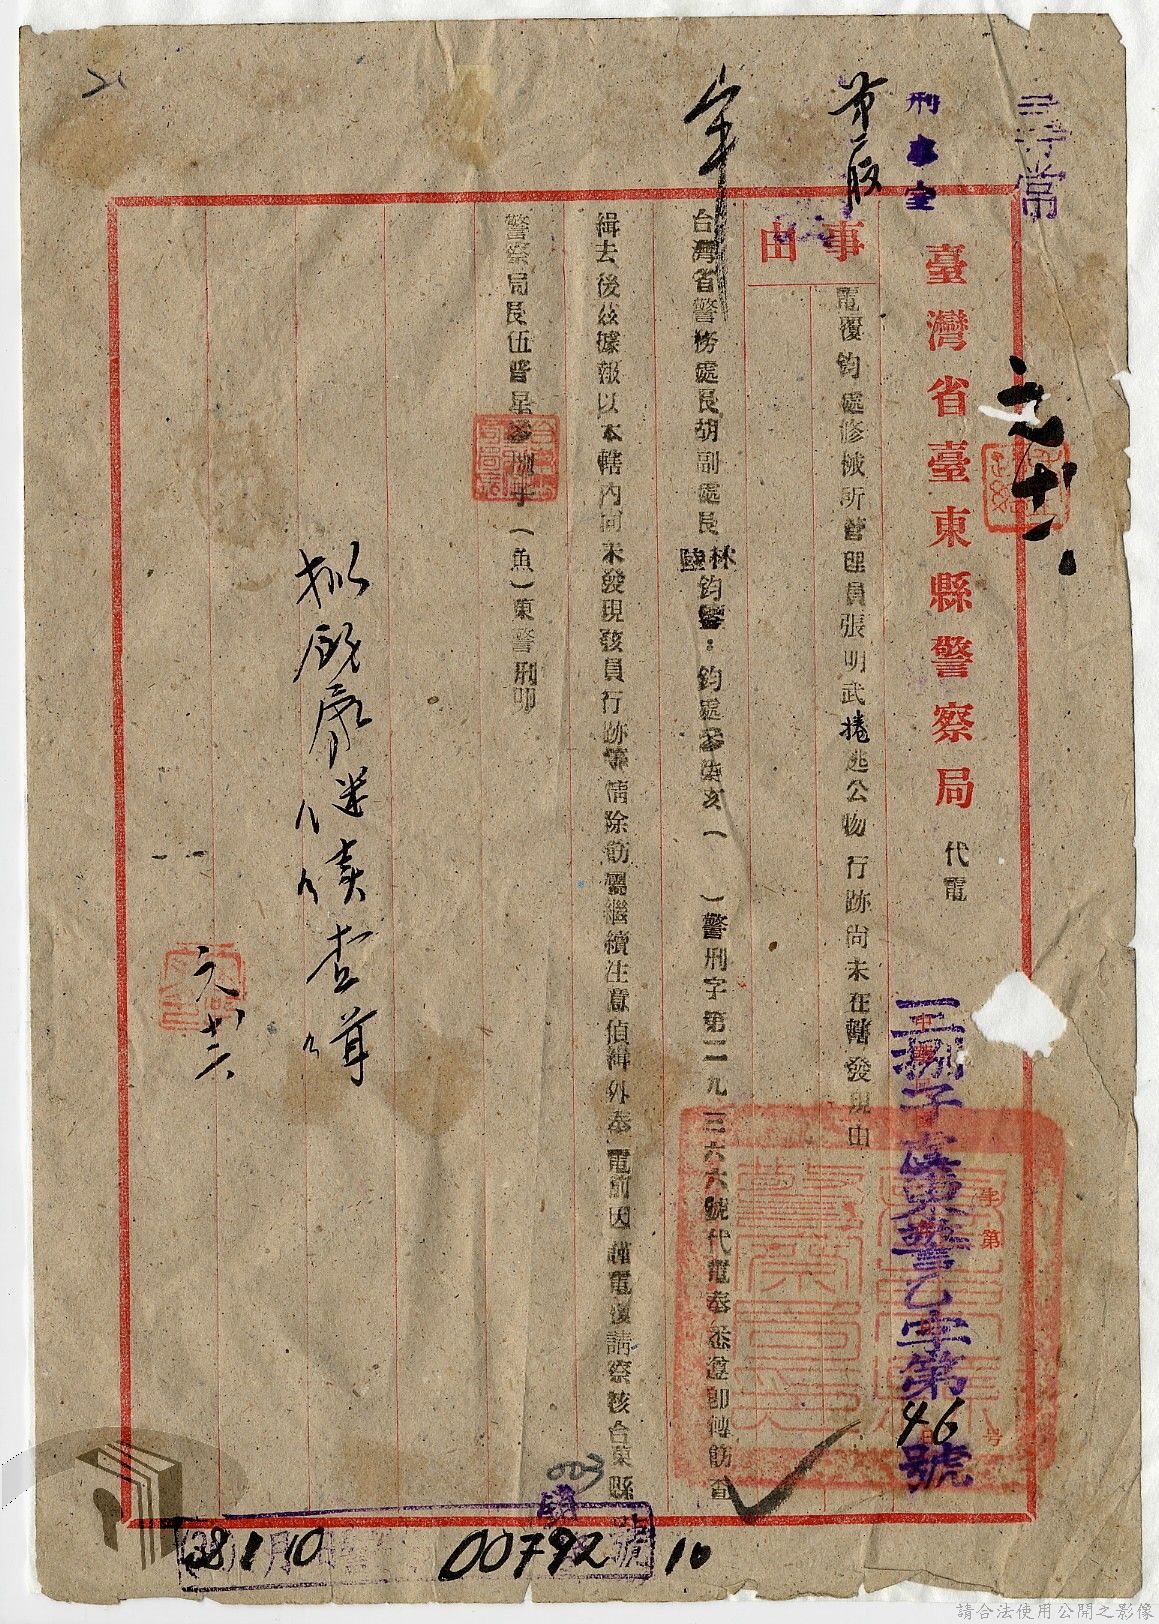 刑事室
臺灣省臺東縣警察局 代電
叁捌子虞東警乙字第46號
事由
電覆鈞處修械所管理員張明武捲逃公物行跡尚未在轄發現由
台灣省警務處長胡副處長林陸鈞鑒：鈞處叁柒亥（　）警刑字第二九三六六號代電奉悉遵即傳飭查
緝去後玆據報以本轄內尚未發現該員行跡等情除飭屬繼續注意偵緝外奉電前因謹電復請察核台東縣
警察局長伍晉星叁捌子（魚）東警刑叩
擬
繼續查
38 1 10
00792
號
10
請合法使用公開之影像